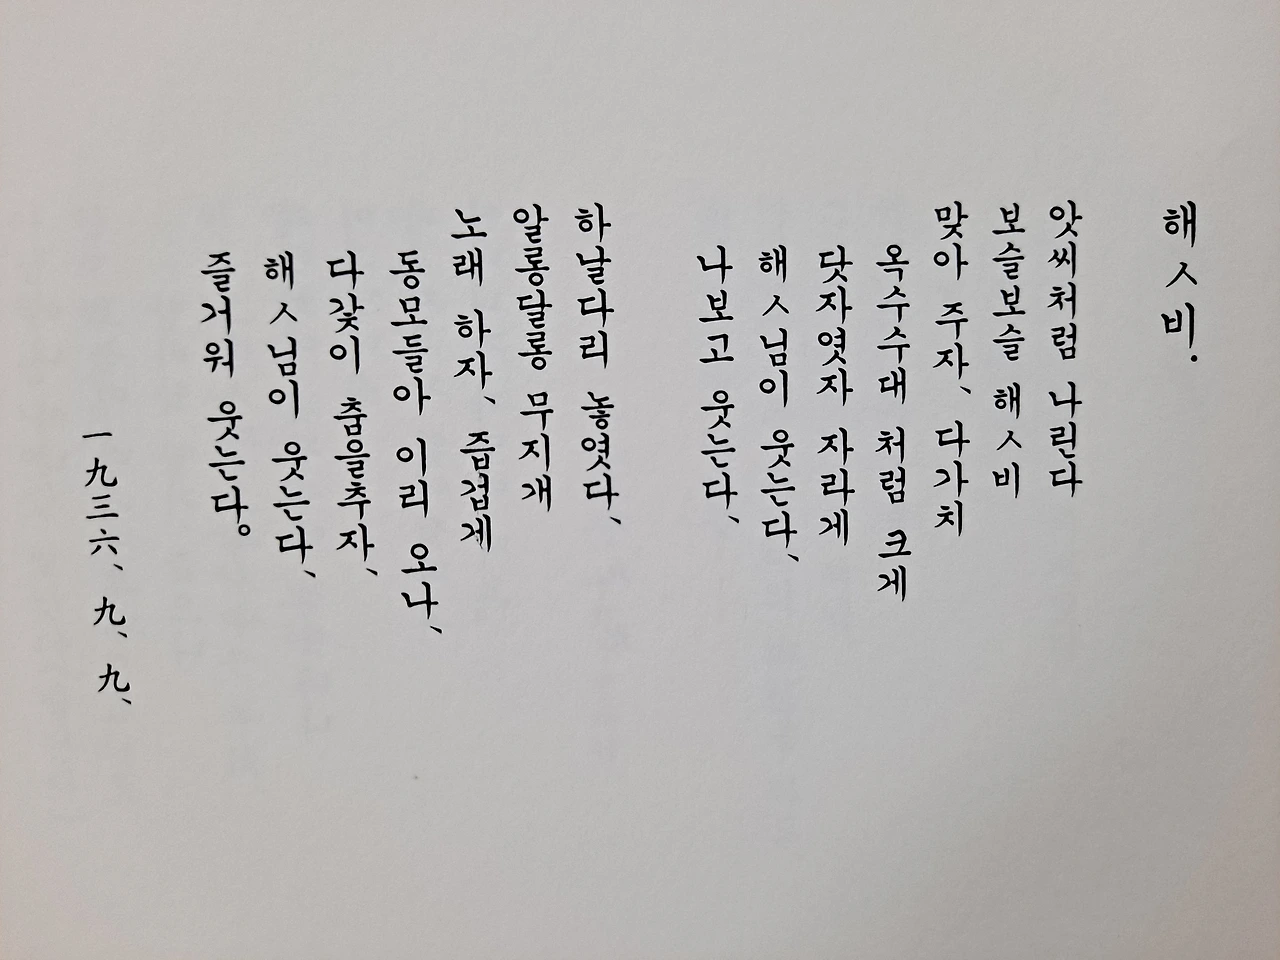 해ㅅ비.
앗씨처럼 나린다
보슬보슬 해ㅅ비
맞아 주자、 다가치
옥수수대 처럼 크게
닷자엿자 자라게
해ㅅ님이 웃는다、
나보고 웃는다、
하날다리 놓엿다、
알롱달롱 무지개
노래 하자、 즙겁게
동모들아 이리 오나、
다갗이 춤을추자、
해ㅅ님이 웃는다、
즐거워 웃는다。
一九三六、九、九、